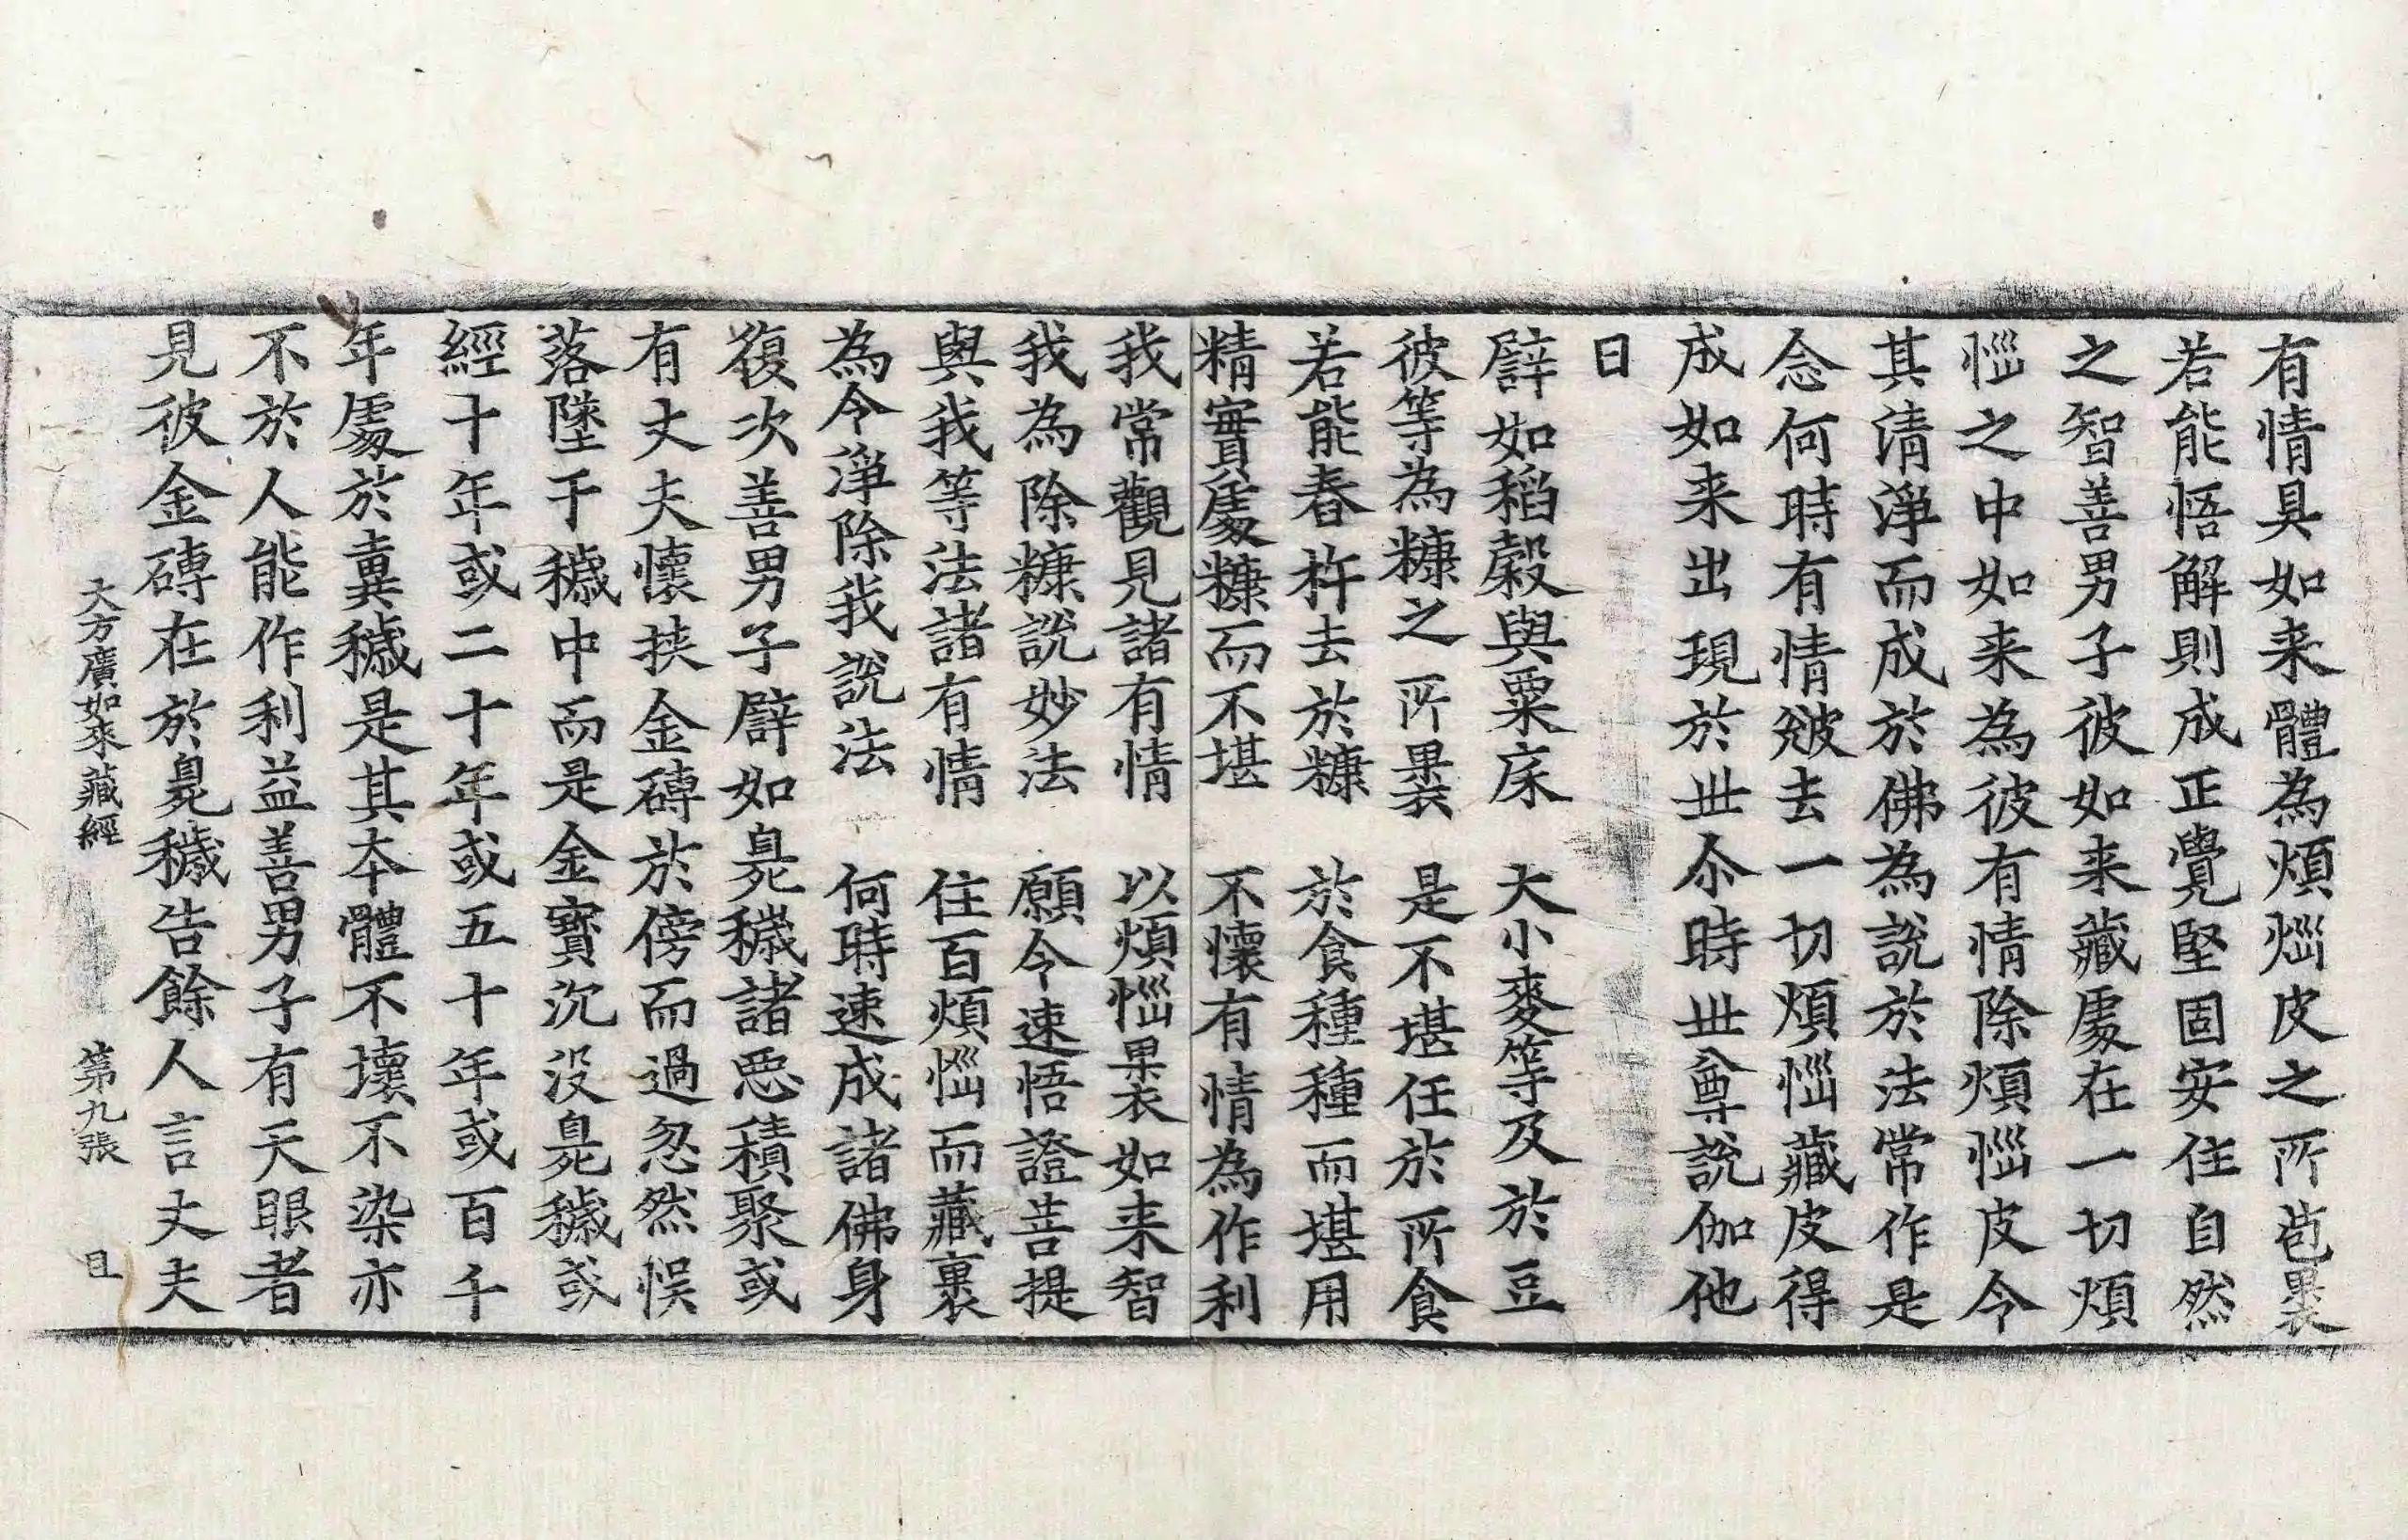 有情具如来體為煩惱皮之所苞裹
若能悟解則成正覺堅固安住自然
之智善男子彼如来藏處在一切煩
惱之中如来為彼有情除煩惱皮令
其清淨而成於佛為說於法常作是
念何時有情皴去一切煩惱藏皮得
成如来出現於世尒時世尊說伽他
曰
譬如稻穀與粟床　大小麥等及於豆
彼等為糠之所裹　是不堪任於所食
若能舂杵去於糠　於食種種而堪用
精實處糠而不堪　不懷有情為作利
我常觀見諸有情　以煩惱裹如来智
我為除糠說妙法　願令速悟證菩提
與我等法諸有情　住百煩惱而藏裹
為令淨除我說法　何時速成諸佛身
復次善男子譬如臰穢諸惡積聚或
有丈夫懷挾金磚於傍而過忽然悞
落墜于穢中而是金寶沉没臰穢或
經十年或二十年或五十年或百千
年處於糞穢是其本體不壞不染亦
不於人能作利益善男子有天眼者
見彼金磚在於臰穢告餘人言丈夫
大方廣如來藏經　第九張